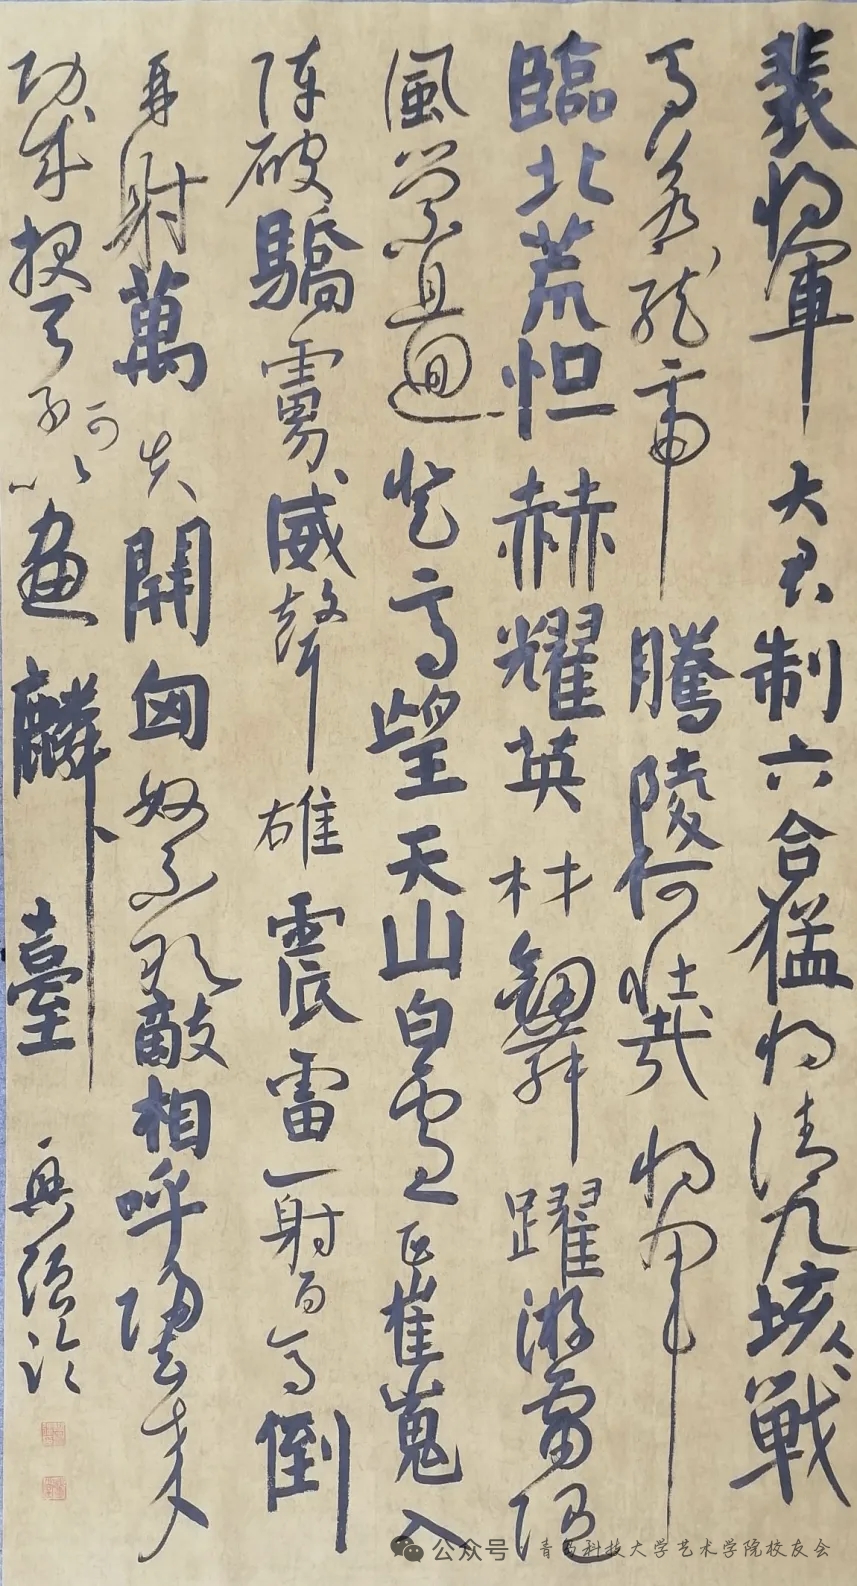 裴将軍大君制六合猛将清九垓戰
馬若龍虎騰陵何壯哉将軍
臨北荒怛赫耀英材劒舞躍游電随
風縈且迴登高望天山白雪正崔嵬入
陣破驕虜威聲雄震雷一射百馬倒
再射萬夫開匈奴不敢敵相呼歸去来
功成報天子可以畫麟臺
公众号 · 青岛科技大学艺术学院校友会